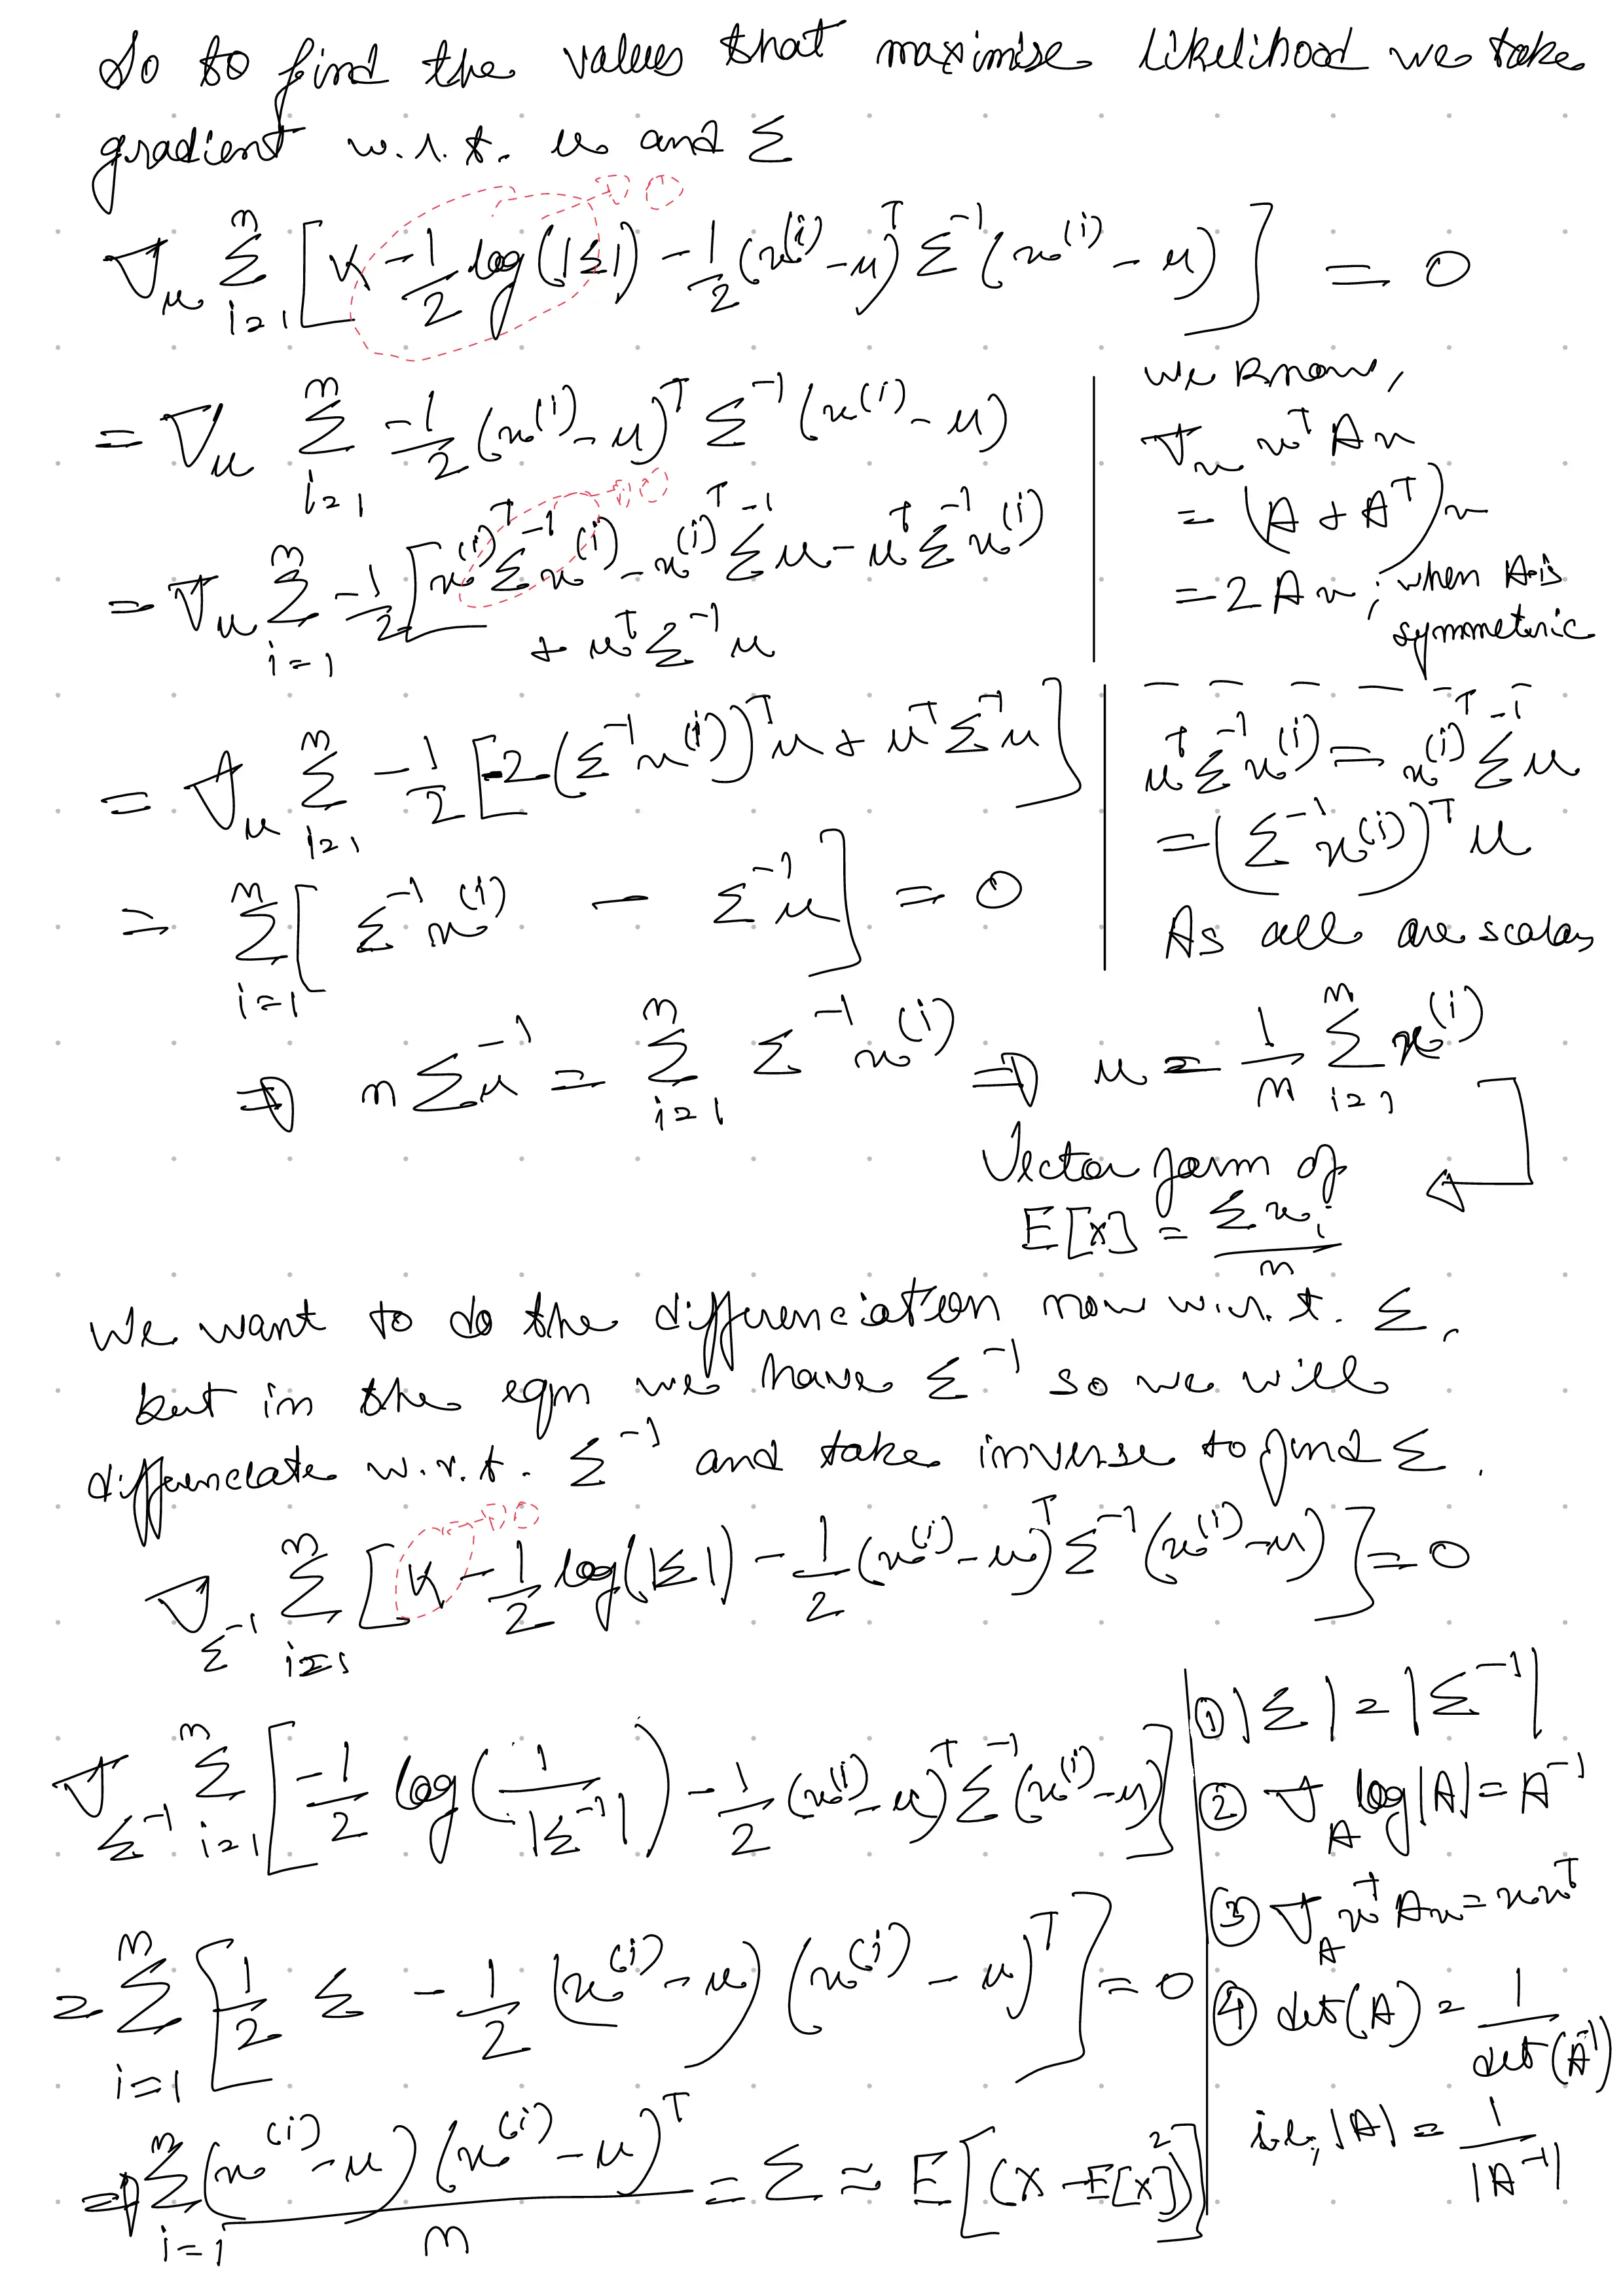 So to find the values that maximise likelihood we take
gradient w.r.t. μ and Σ
∇_μ Σ_{i=1}^{n} [K - 1/2 log(|Σ|) - 1/2 (x^(i) - μ)^T Σ^-1 (x^(i) - μ)] = 0
→ 0
= ∇_μ Σ_{i=1}^{n} -1/2 (x^(i) - μ)^T Σ^-1 (x^(i) - μ)
= ∇_μ Σ_{i=1}^{n} -1/2 [x^(i)T Σ^-1 x^(i) - x^(i)T Σ^-1 μ - μ^T Σ^-1 x^(i)
→ 0
+ μ^T Σ^-1 μ
we know,
∇_x x^T A x
= (A + A^T) x
= 2 A x ; when A is
symmetric
= ∇_μ Σ_{i=1}^{n} -1/2 [-2 (Σ^-1 x^(i))^T μ + μ^T Σ^-1 μ]
= Σ_{i=1}^{n} [Σ^-1 x^(i) - Σ^-1 μ] = 0
μ^T Σ^-1 x^(i) = x^(i)T Σ^-1 μ
= (Σ^-1 x^(i))^T μ
As all are scalars
⇒ n Σ^-1 μ = Σ_{i=1}^{n} Σ^-1 x^(i) ⇒ μ = 1/n Σ_{i=1}^{n} x^(i)
Vector form of
E[X] = Σ x_i / n
We want to do the differenciation now w.r.t. Σ,
but in the eqn we have Σ^-1 so we will
differenciate w.r.t. Σ^-1 and take inverse to find Σ.
∇_{Σ^-1} Σ_{i=1}^{n} [K - 1/2 log(|Σ|) - 1/2 (x^(i) - μ)^T Σ^-1 (x^(i) - μ)] = 0
→ 0
∇_{Σ^-1} Σ_{i=1}^{n} [-1/2 log(1/|Σ^-1|) - 1/2 (x^(i) - μ)^T Σ^-1 (x^(i) - μ)]
= Σ_{i=1}^{n} [1/2 Σ - 1/2 (x^(i) - μ) (x^(i) - μ)^T] = 0
① |Σ| = |Σ^-1|
② ∇_A log|A| = A^-1
③ ∇_A x^T A x = x x^T
④ det(A) = 1/det(A^-1)
i.e., |A| = 1/|A^-1|
⇒ Σ_{i=1}^{n} (x^(i) - μ) (x^(i) - μ)^T / n = Σ ≈ E[(X - E[X])^2]